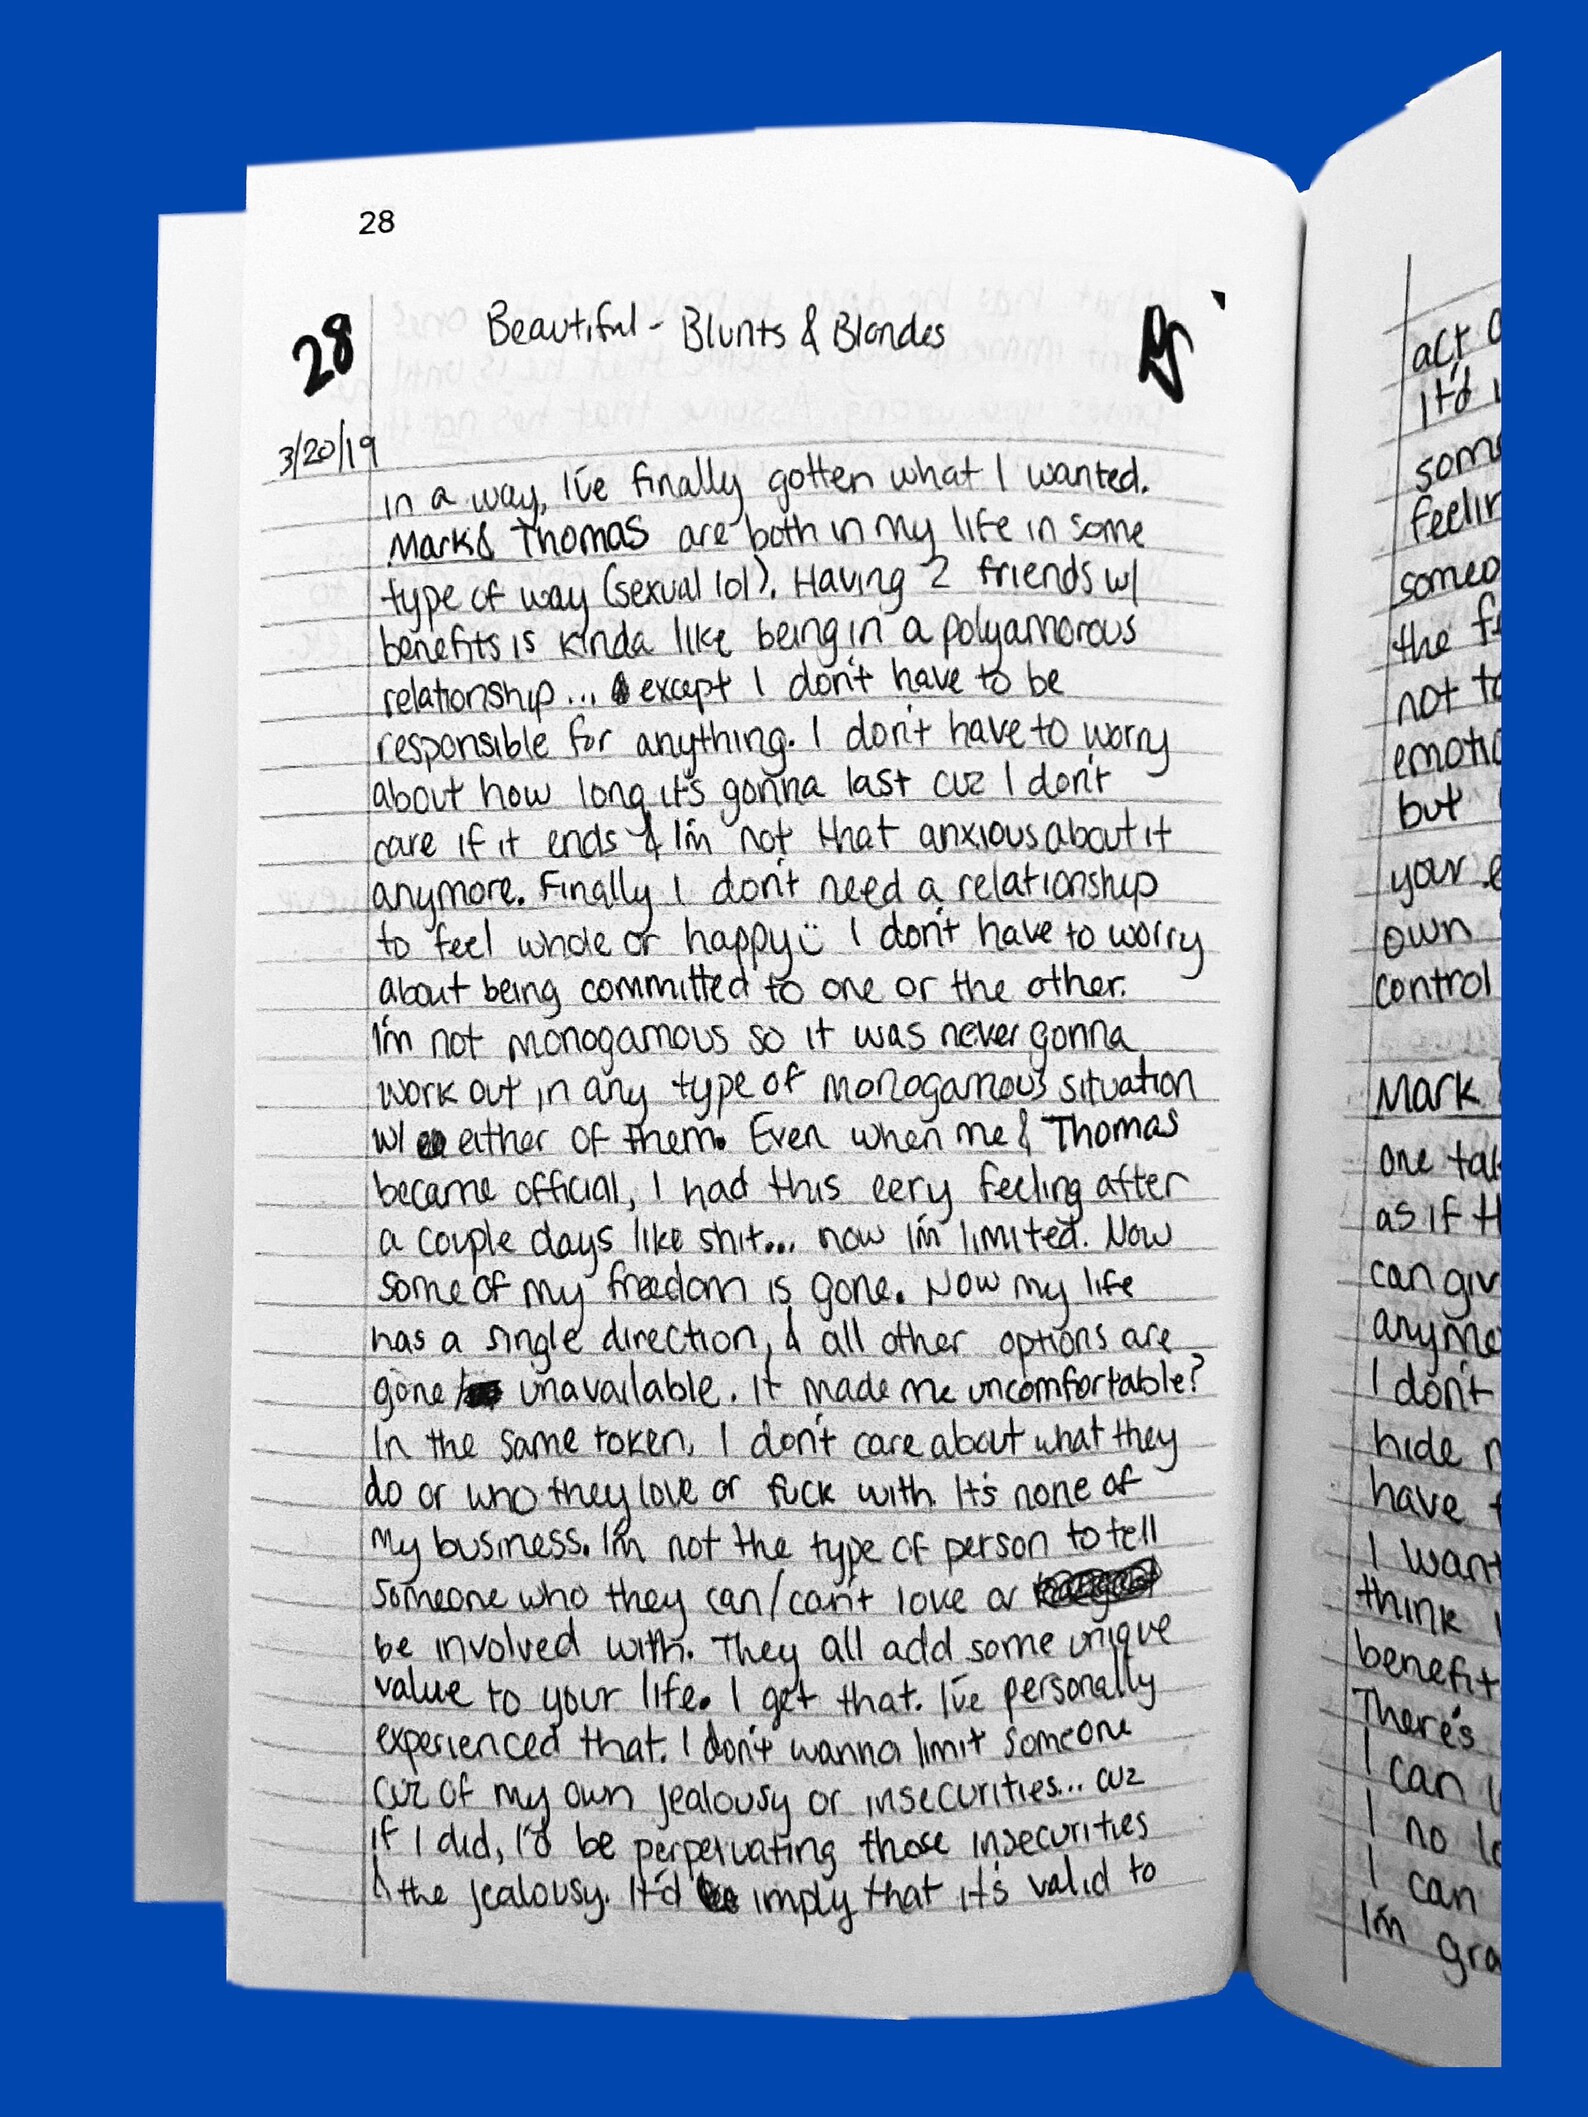 28
28 Beautiful - Blunts & Blondes
3/20/19
in a way, I've finally gotten what I wanted.
Mark & Thomas are both in my life in some
type of way (sexual lol). Having 2 friends w/
benefits is kinda like being in a polyamorous
relationship... except I don't have to be
responsible for anything. I don't have to worry
about how long it's gonna last cuz I don't
care if it ends & I'm not that anxious about it
anymore. Finally I don't need a relationship
to feel whole or happy :) I don't have to worry
about being committed to one or the other.
I'm not monogamous so it was never gonna
work out in any type of monogamous situation
w/ either of them. Even when me & Thomas
became official, I had this eery feeling after
a couple days like shit... now I'm limited. Now
some of my freedom is gone. Now my life
has a single direction, & all other options are
gone / unavailable. It made me uncomfortable?
In the same token, I don't care about what they
do or who they love or fuck with. It's none of
my business. I'm not the type of person to tell
someone who they can/can't love or
be involved with. They all add some unique
value to your life. I get that. I've personally
experienced that. I don't wanna limit someone
cuz of my own jealousy or insecurities... cuz
if I did, I'd be perpetuating those insecurities
& the jealousy. It'd imply that it's valid to
act
it'd
the
not
but
own
control
Mark
one
as if
can
I don't
hide
have
I want
think
benefit
There's
I can
I no
I can
I'm